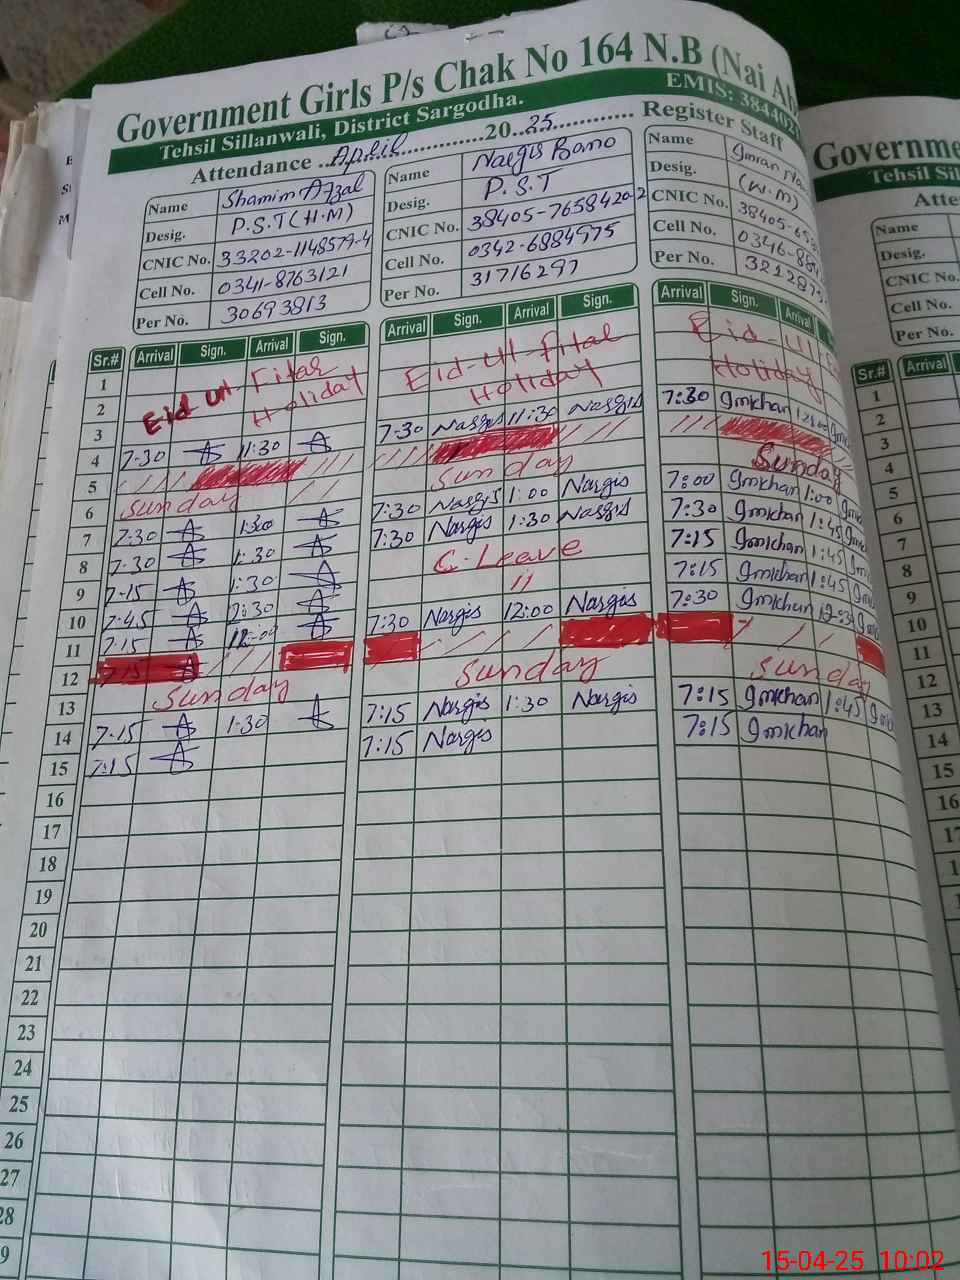 Government Girls P/s Chak No 164 N.B (Nai A
Tehsil Sillanwali, District Sargodha.
EMIS: 3844021
Attendance April 2025 Register Staff
Name Shamim Afzal
Desig. P.S.T (H.M)
CNIC No. 33202-1148579-4
Cell No. 0341-8763121
Per No. 30693813
Name Nargis Bano
Desig. P.S.T
CNIC No. 38405-7658420-2
Cell No. 0342-6884975
Per No. 31716297
Name Imran
Desig. (W.M)
CNIC No. 38405-65
Cell No. 0346-86
Per No. 321287
Sr.# Arrival Sign. Arrival Sign. Arrival Sign. Arrival Sign. Arrival Sign. Arrival
1 Eid-Ul-Fitar Eid-Ul-Fitar Eid-Ul-
2 Holiday Holiday Holiday
3 7-30 11:30 7-30 Nargis 11:30 Nargis 7:30 Imkhan
4
5 Sunday Sunday Sunday
6 7-30 1:30 7:30 Nargis 1:00 Nargis 7:00 Imkhan 1:00
7 7-30 1:30 7:30 Nargis 1:30 Nargis 7:30 Imkhan 1:45
8 7-15 1:30 C. Leave 7:15 Imkhan 1:45
9 7-45 2:30 11 7:15 Imkhan 1:45
10 7:15 12:00 7:30 Nargis 12:00 Nargis 7:30 Imkhan 12:30
11 7-15
12 Sunday Sunday Sunday
13 7-15 1-30 7:15 Nargis 1:30 Nargis 7:15 Imkhan 1:45
14 7:15 7:15 Nargis 7:15 Imkhan
15
16
17
18
19
20
21
22
23
24
25
26
27
28
9
Governme
Tehsil Sil
Atte
Name
Desig.
CNIC No.
Cell No.
Per No.
Sr.# Arrival
1
2
3
4
5
6
7
8
9
10
11
12
13
14
15
16
15-04-25 10:02